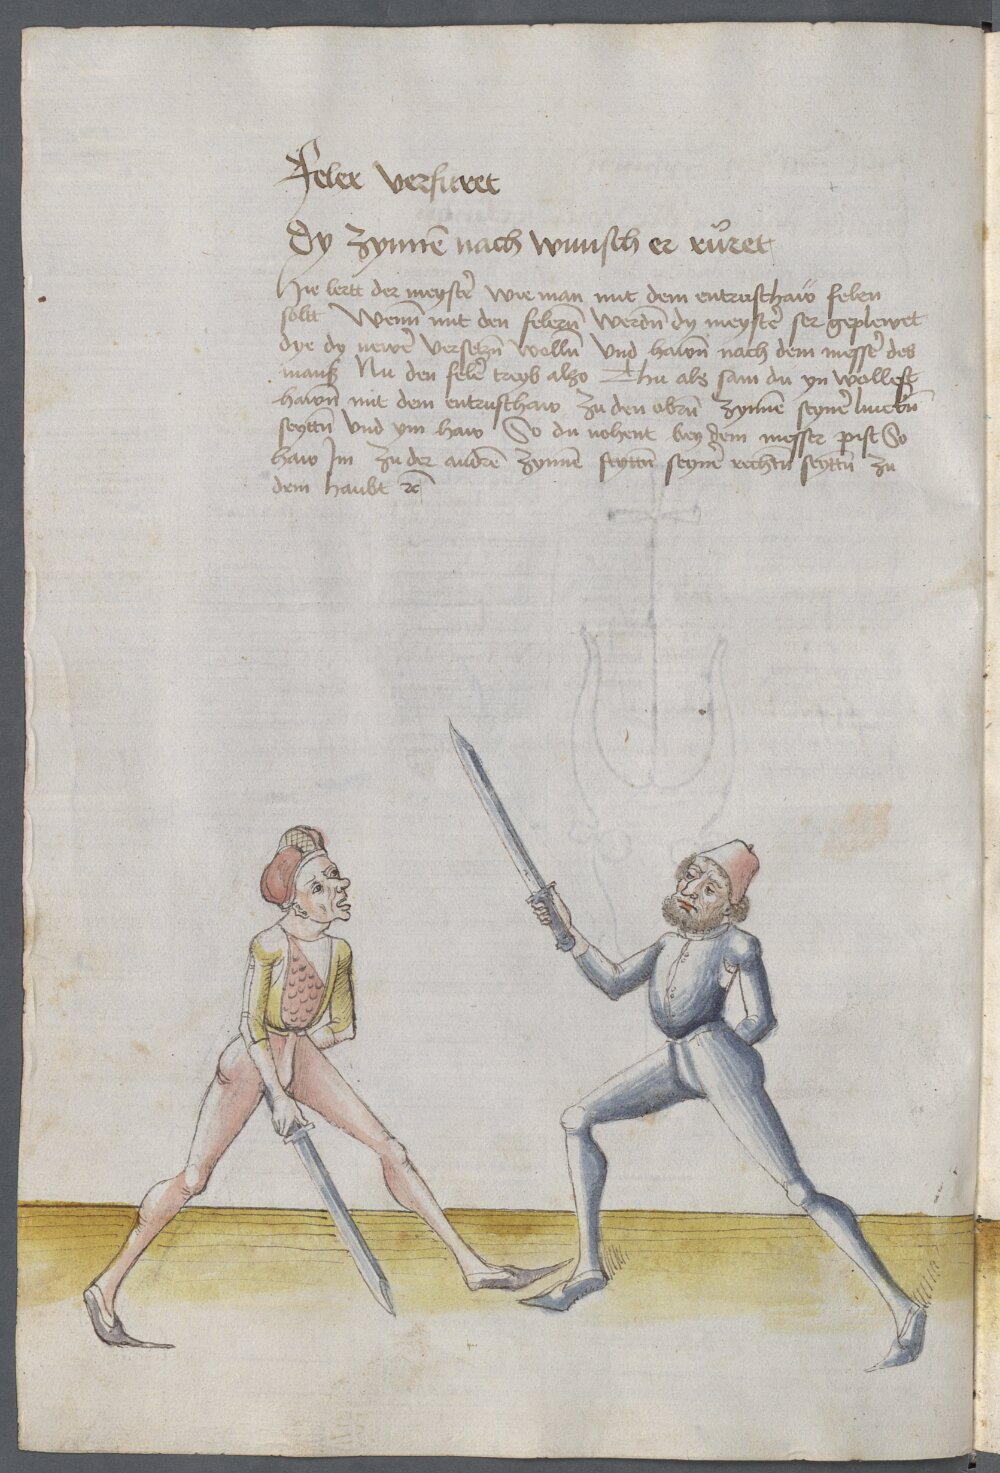 Feler verfuret
Dy zynnē nach wunsch er růret
Hie lertt der meystē wie man mit dem entrusthaw felen
soltt Wenn mit den felern Werdn dy meystē ser geplewet
dye dy newē versetzn wolln Und hawn nach dem messē des
mans Nu den felē treyb also Thu als sam du yn wollest
hawn mit dem entrusthaw zu den obrn zynnē seynē lincкn
seyttn Und ym haw So du nohent bey dem messer pist So
haw Im zu der andrē zynnē seyttn seynē rechtn seyttn zu
dem haubt ꝛc̄